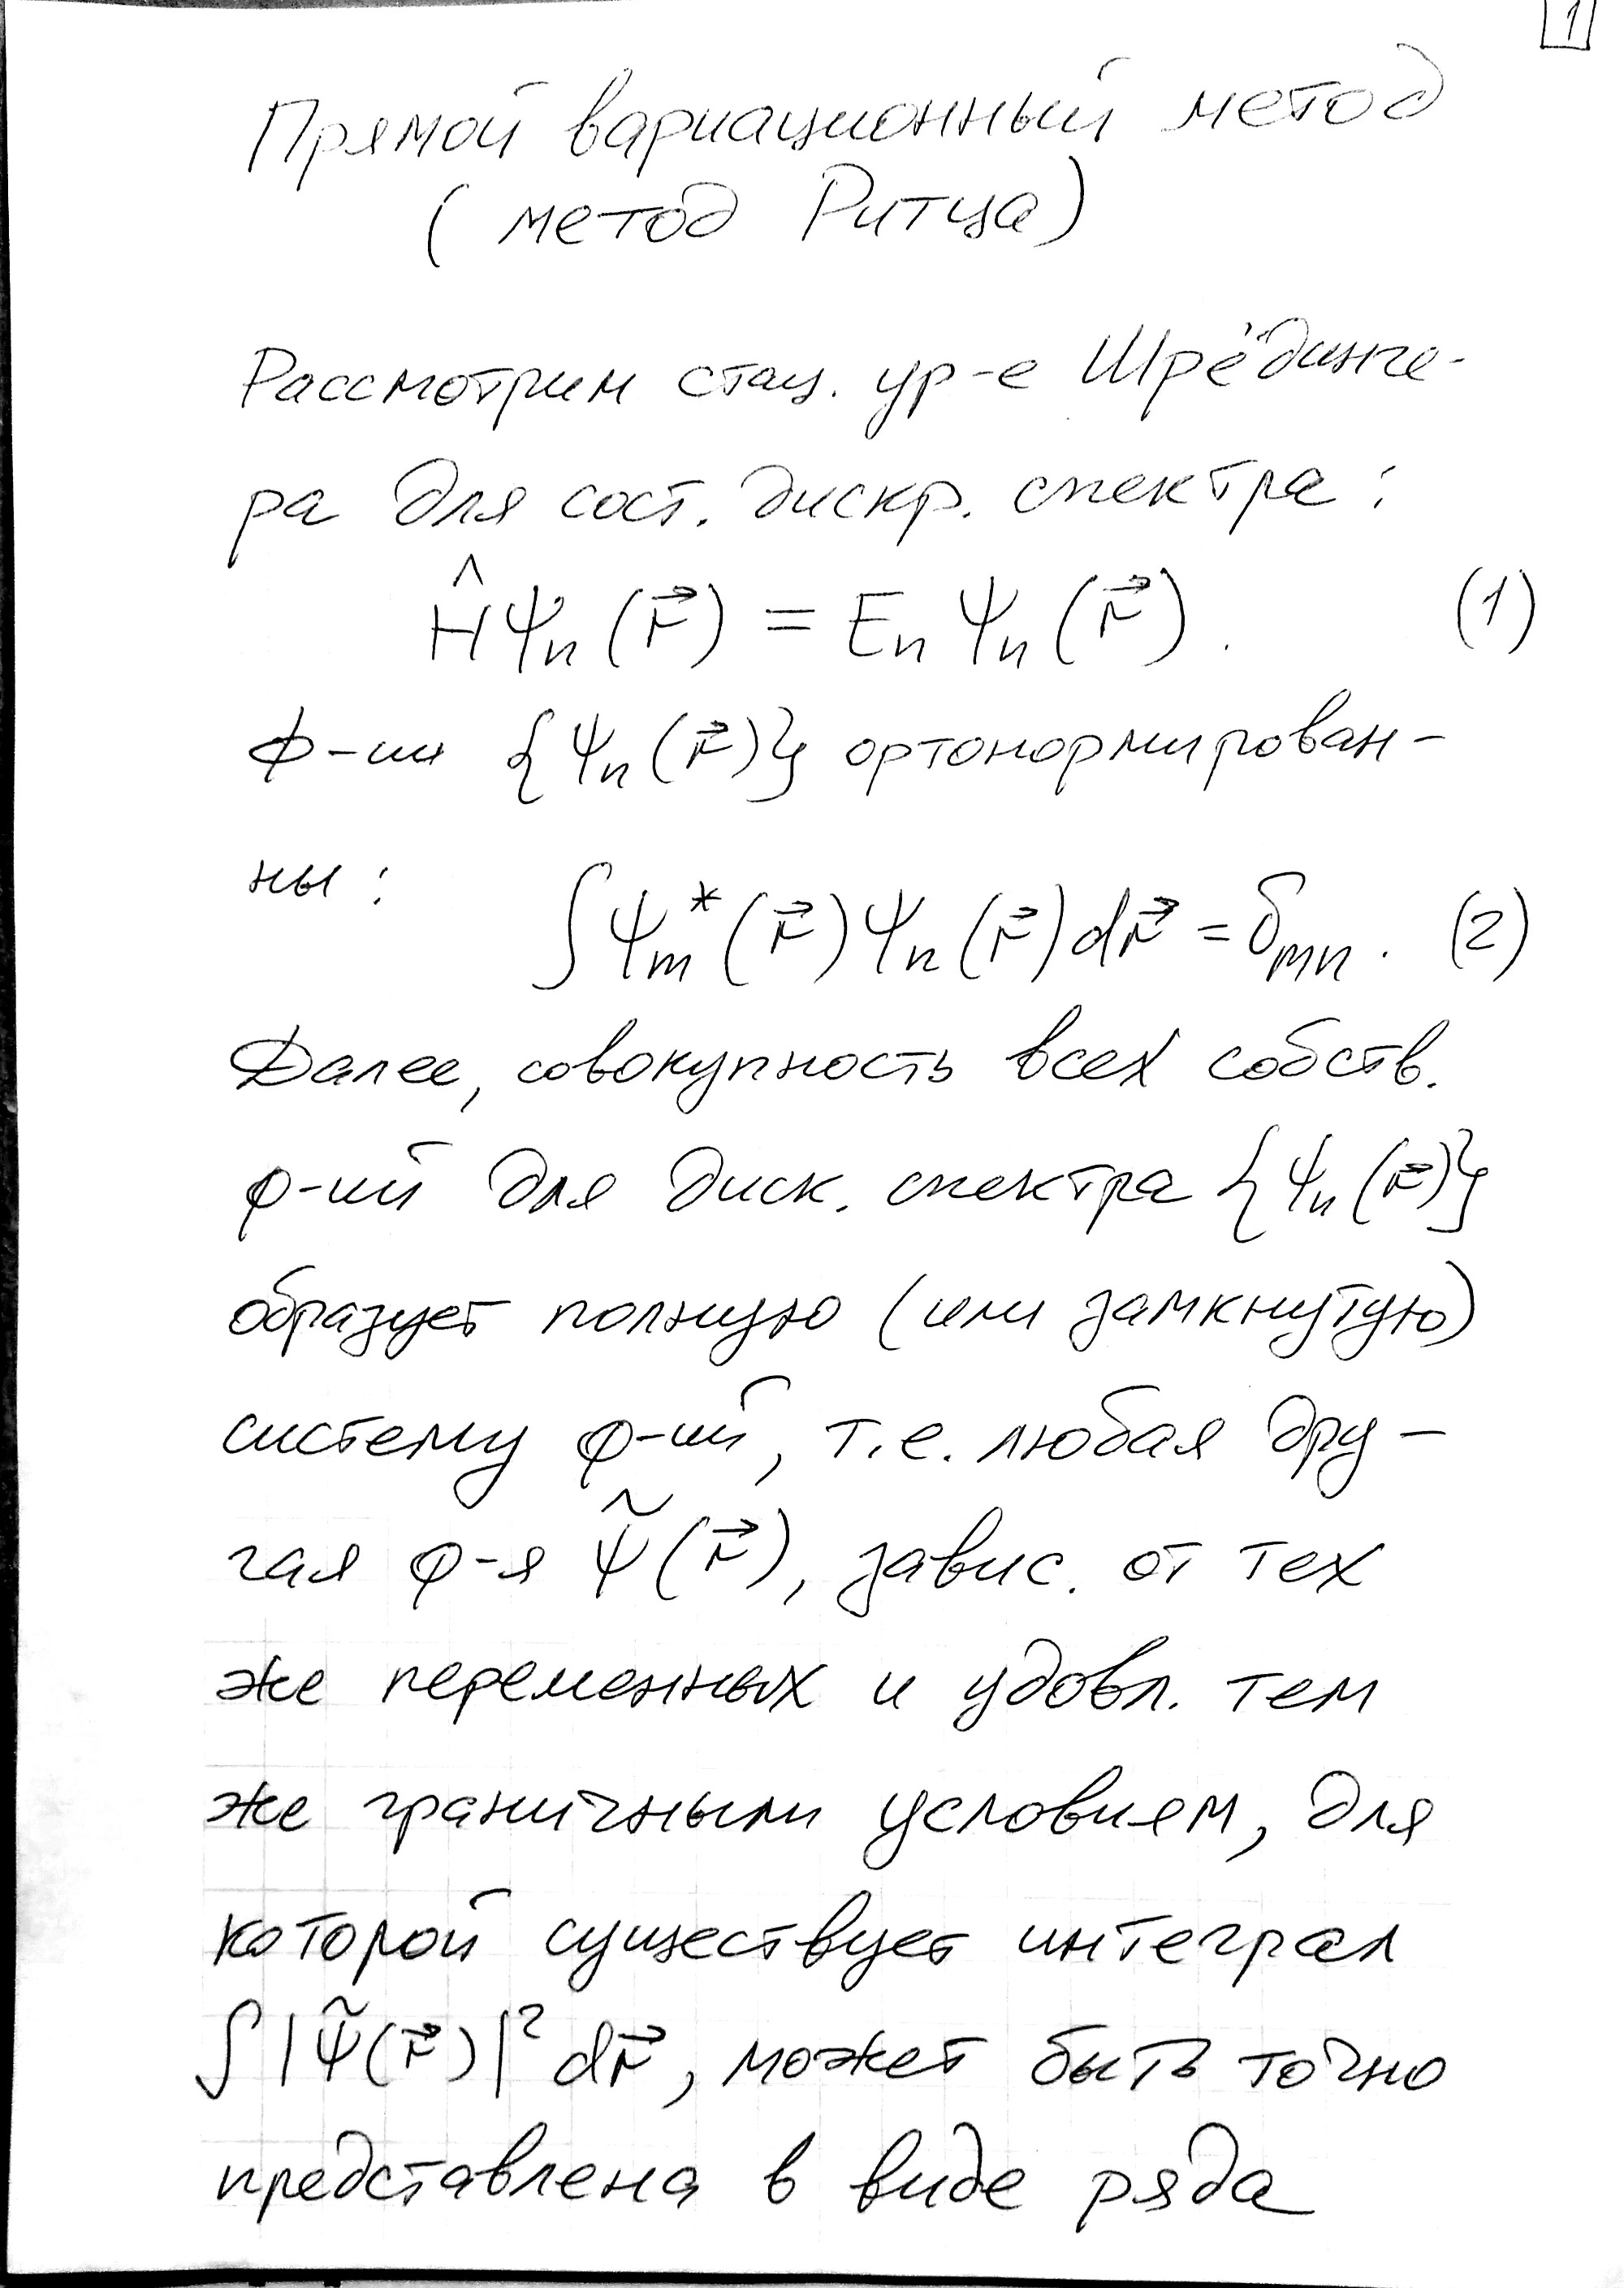 1
Прямой вариационный метод
(метод Ритца)
Рассмотрим стац. ур-е Шрёдинге-
ра для сост. дискр. спектра:
Ĥψₙ(r⃗) = Eₙψₙ(r⃗). (1)
Ф-ии {ψₙ(r⃗)} ортонормирован-
ны:
∫ψₘ*(r⃗)ψₙ(r⃗)dr⃗ = δₘₙ. (2)
Далее, совокупность всех собств.
ф-ий для диск. спектра {ψₙ(r⃗)}
образует полную (или замкнутую)
систему ф-ий, т.е. любая дру-
гая ф-я ψ̃(r⃗), завис. от тех
же переменных и удовл. тем
же граничным условием, для
которой существует интеграл
∫|ψ̃(r⃗)|² dr⃗, может быть точно
представлена в виде ряда